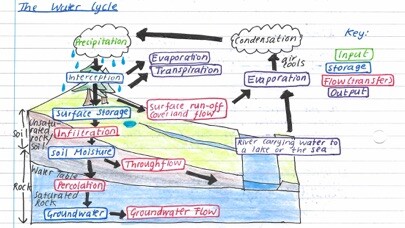 The Water Cycle
Precipitation
Condensation
Key:
Input
Storage
Flow (transfers)
Output
air
cools
Evaporation
Transpiration
Interception
Evaporation
Surface Storage
Surface run-off
(overland flow)
Soil
Unsatu-
rated
rock
Soil
Infiltration
Soil Moisture
River carrying water to
a lake or the sea
Throughflow
Water Table
Rock
Percolation
Saturated
Rock
Groundwater
Groundwater Flow